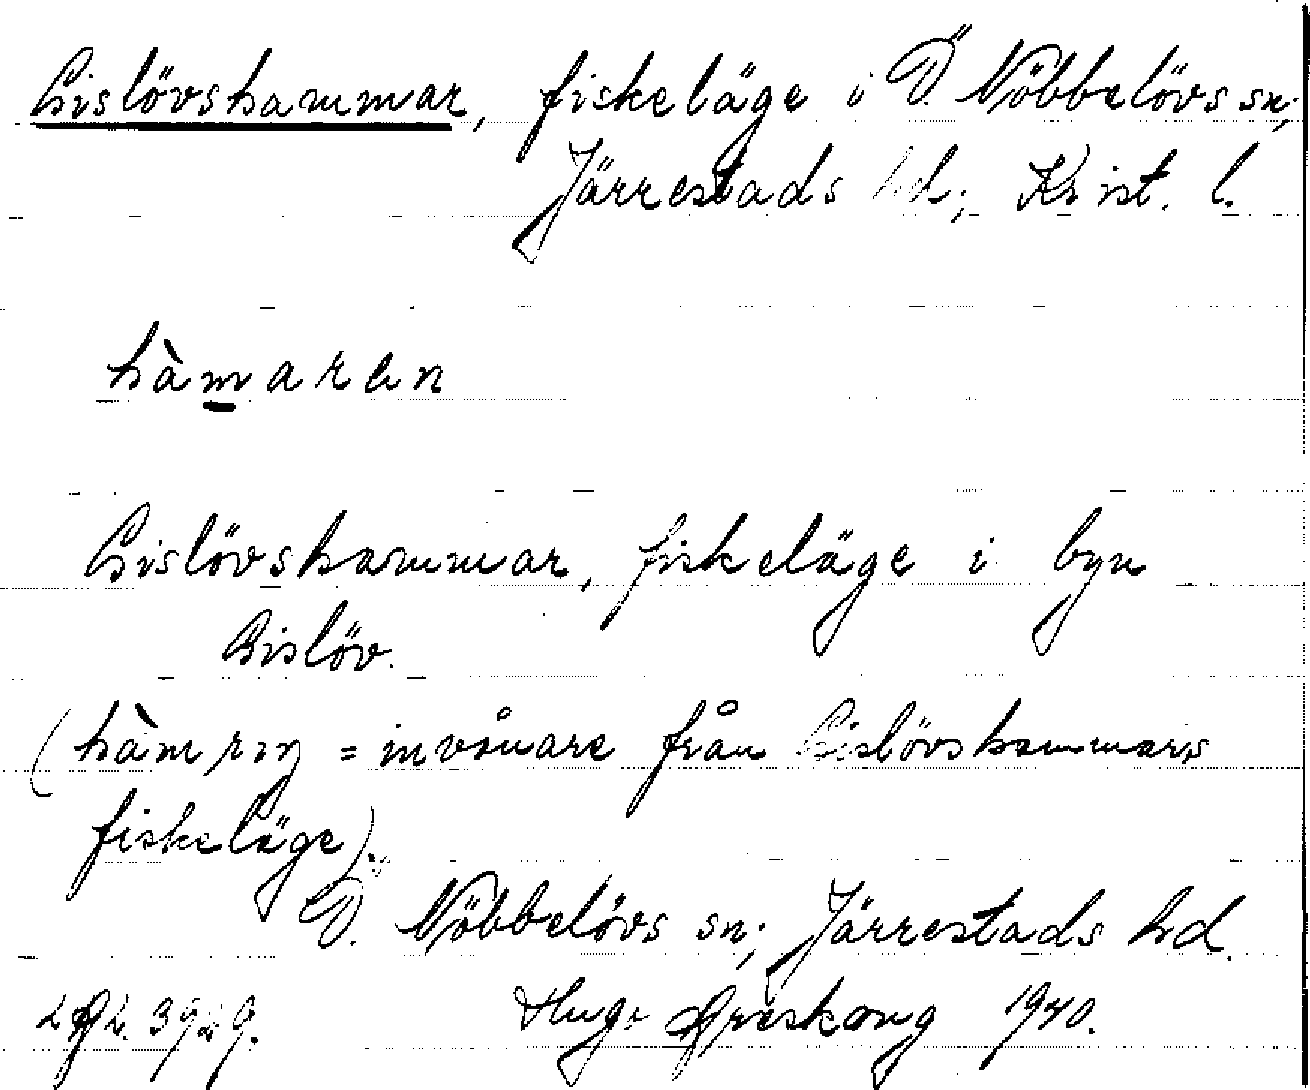 Gislövshammar, fiskeläge i Ö. Nöbbelövs sn;
Järrestads hd; Krist. l.
hàmaren
Gislövshammar, fiskeläge i byn
Gislöv.
(hàmriŋ = invånare från Gislövshammars
fiskeläge).
Ö. Nöbbelövs sn; Järrestads hd.
1940.